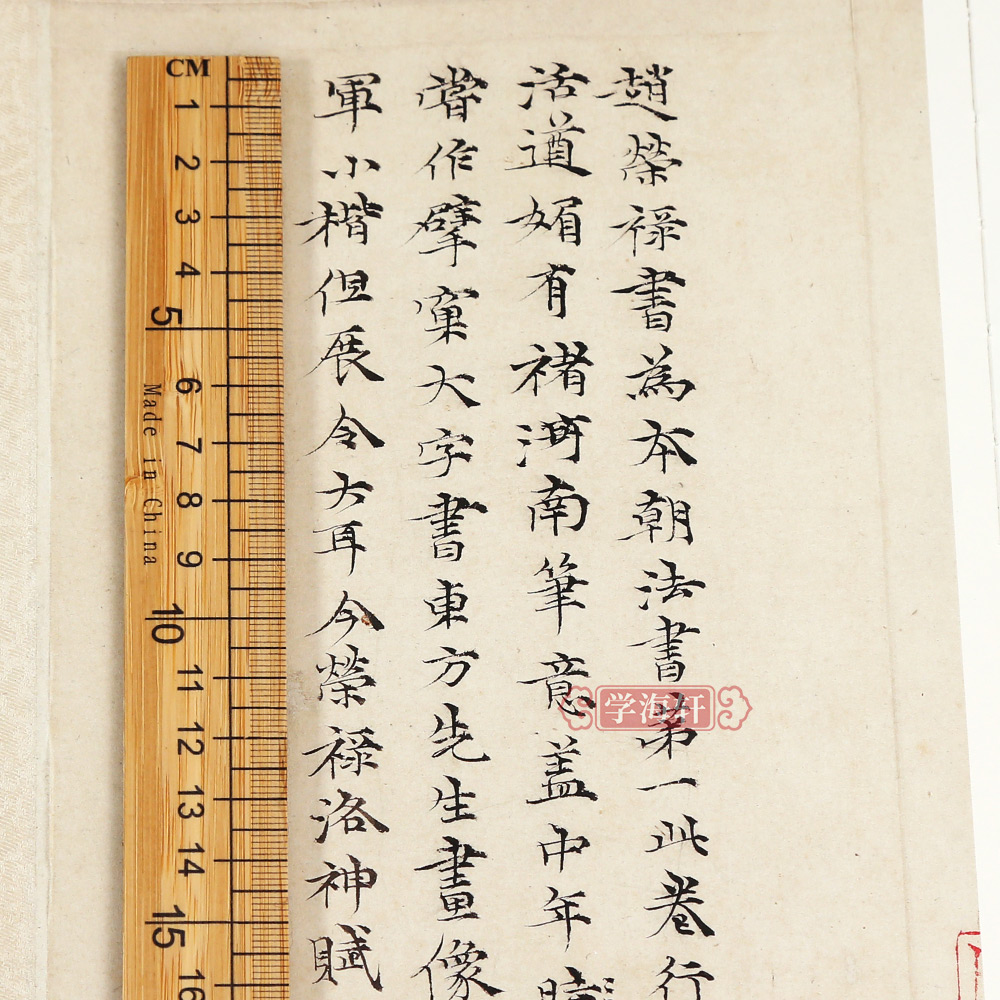 趙榮祿書為本朝法書第一此卷行
活遒媚有褚河南筆意蓋中年時
嘗作擘窠大字書東方先生畫像
軍小楷但展令大耳今榮祿洛神賦
学海轩
CM
1
2
3
4
5
6
7
8
9
10
11
12
13
14
15
16
Made in China